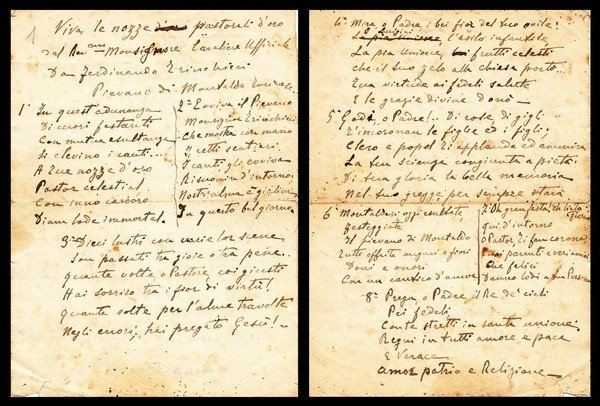 1
Viva le nozze d'oro pastorali d'oro
del Rev.mo Monsignore Cavaliere Ufficiale
Don Ferdinando
Pievano di Montaldo
1° In quest'adunanza
Di cuori festanti
Con mutua esultanza
Si elevino i canti...
A Tue nozze d'oro
Pastor celestial
Con inno canoro
Diam lode immortal.
2a Evviva il Pievano
Monsignor
Che mostra con mano
I retti sentieri.
I canti gli evviva
Risuonin d'intorno
Nostr'alma è giuliva
In questo bel giorno
3a Dieci lustri con varie lor scene
Son passati tra gioie e tra pene.
quante volte, o Pastore coi giusti
Hai sorriso tra i fior di virtù!
quante volte per l'alme travolte
Negli errori, hai pregato Gesù!..
4a Mira o Padre i bei fior del tuo ovile!
Luigini
La pia unione l'asilo infantile
La pia unione, frutti celesti
che il tuo zelo alla chiesa portò...
Tua virtude ai fedeli salute
E le grazie divine donò
5a Godi, o Padre!.. Di rose di gigli
T'incoronan le figlie ed i figli;
Clero e popol Ti applaude ed ammira
La tua scienza congiunta a pietà
Di tua gloria la bella memoria
Nel tuo gregge per sempre starà
6a Montaldesi oggi esultate
Festeggiate
Il pievano di Montaldo
Tutti offrite auguri e fiori
Doni e onori
Con un cantico d'amor
7a Oh gran festa!
qui d'intorno
o Pastor, Ti fan corona,
parenti
Che felici
Danno lodi a un Pastore
8a Prega, o Padre il Re de' cieli
Pei fedeli
Con te stretti in santa unione
Regni in tutti amore e pace
E Verace
amor patrio e Religione